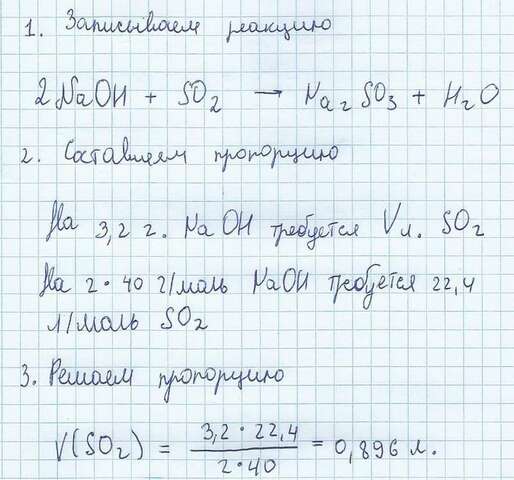 1. Записываем реакцию
2NaOH + SO₂ → Na₂SO₃ + H₂O
2. Составляем пропорцию
На 3,2 г. NaOH требуется V л. SO₂
На 2·40 г/моль NaOH требуется 22,4
л/моль SO₂
3. Решаем пропорцию
V(SO₂) = 3,2·22,4 / 2·40 = 0,896 л.